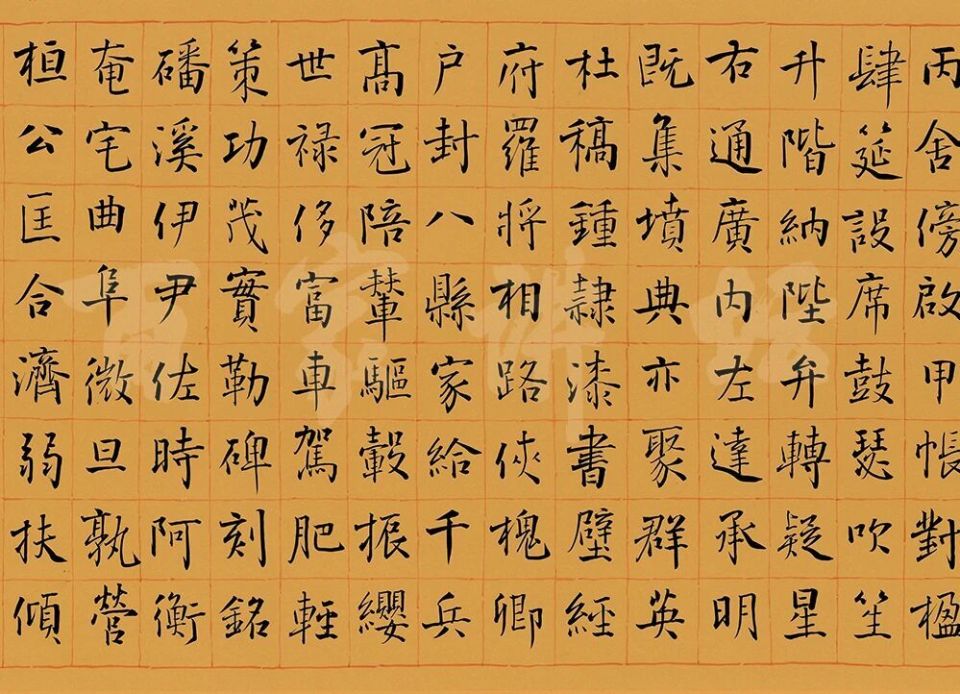 丙舍傍啟甲帳對楹
肆筵設席鼓瑟吹笙
升階納陛弁轉疑星
右通廣内左達承明
既集墳典亦聚群英
杜稿鍾隸漆書壁經
府羅將相路俠槐卿
户封八縣家給千兵
髙冠陪輦驅轂振纓
世禄侈富車駕肥輕
策功茂實勒碑刻銘
磻溪伊尹佐時阿衡
奄宅曲阜微旦孰營
桓公匡合濟弱扶傾
百家讲坛